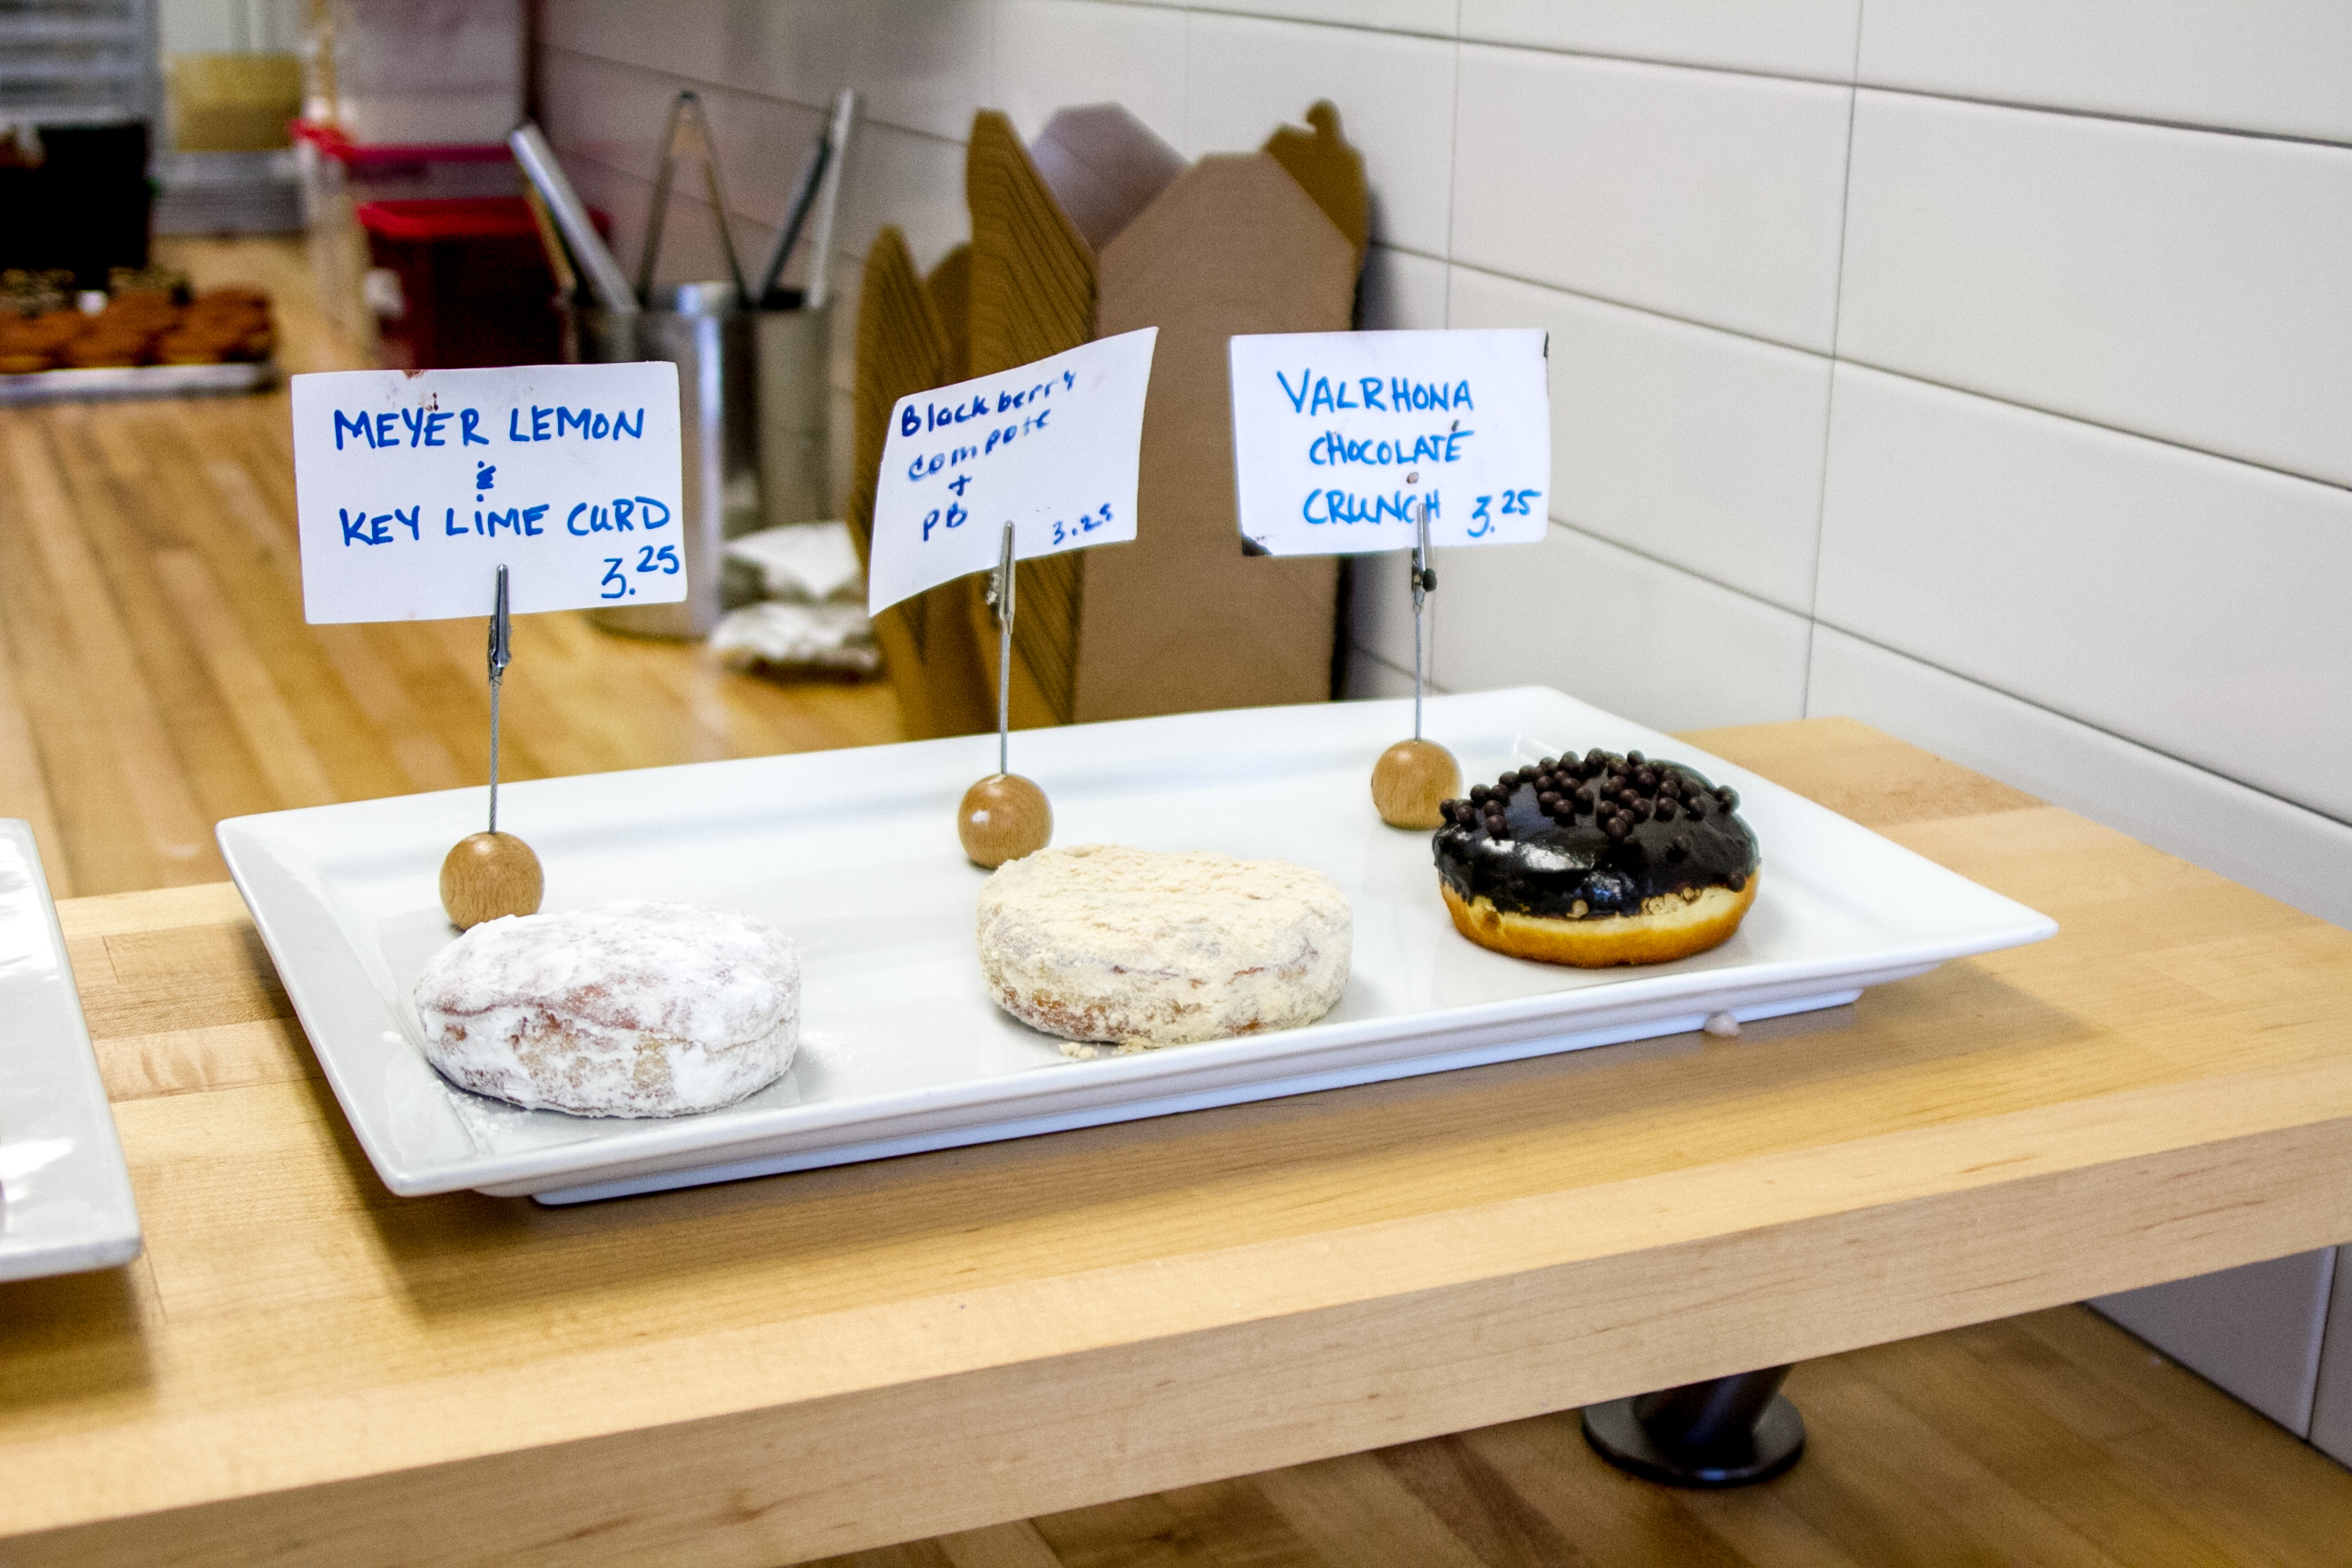 MEYER LEMON
&
KEY LIME CURD
3.25
Blackberry
compote
+
PB
3.25
VALRHONA
CHOCOLATE
CRUNCH 3.25